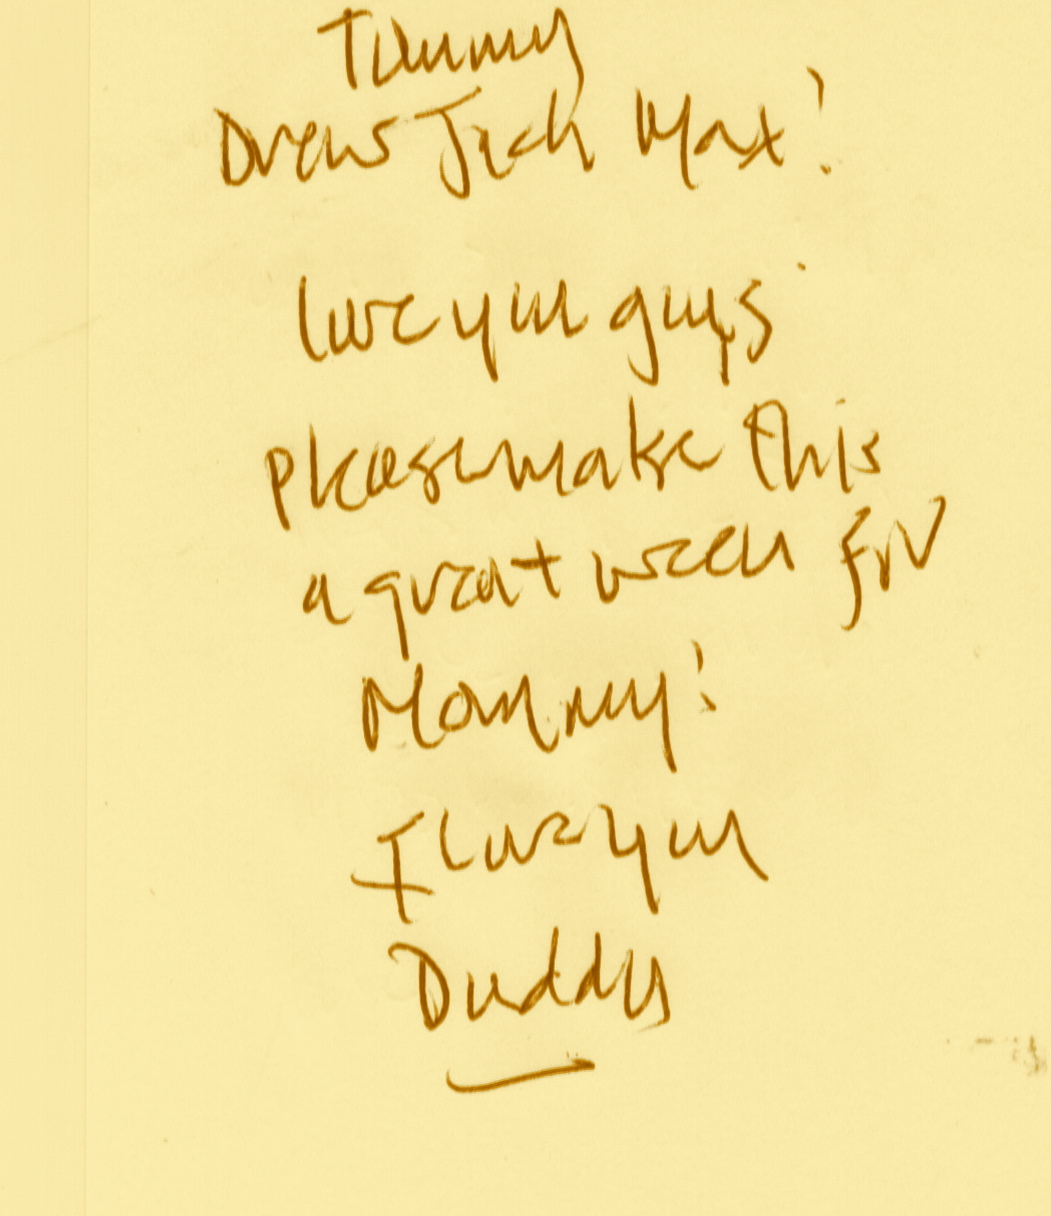 Tommy
Drew Jack Max!
love you guys
please make this
a great week for
Mommy!
I love you
Daddy